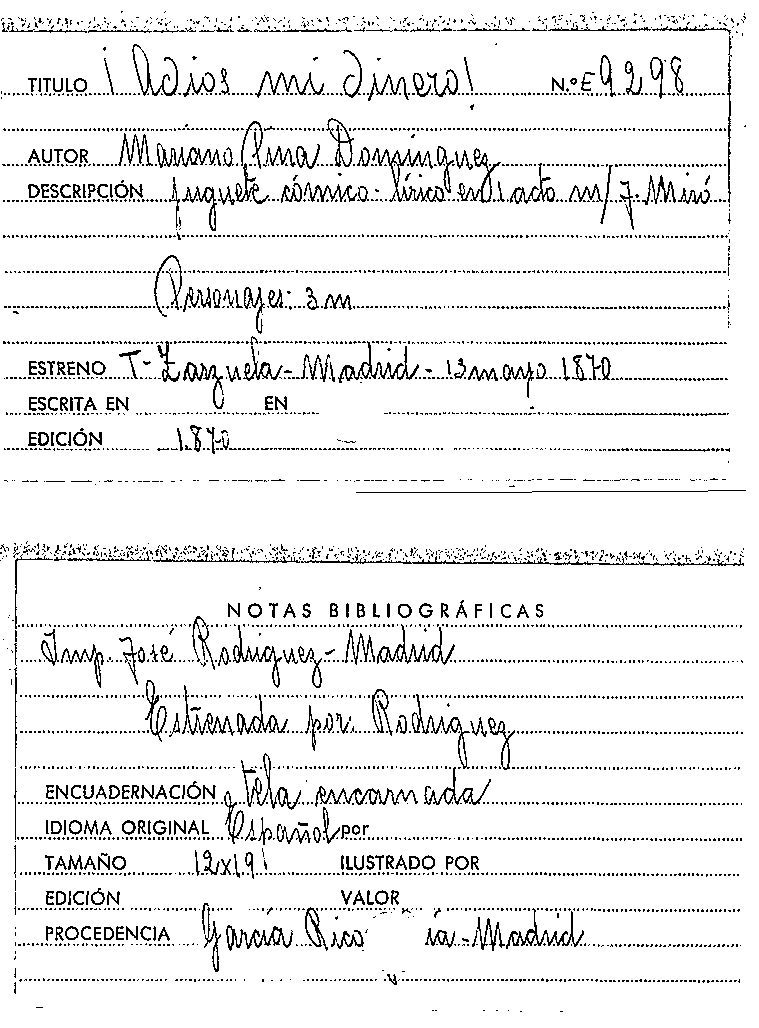 TITULO ¡Adios mi dinero! N.º E 9298
AUTOR Mariano Pina Dominguez
DESCRIPCIÓN Juguete cómico-lírico en 1 acto m/ J. Miró
Personajes: 3 m
ESTRENO T- Zarzuela - Madrid - 13 mayo 1870
ESCRITA EN EN
EDICIÓN 1.870
NOTAS BIBLIOGRÁFICAS
Imp. José Rodriguez - Madrid
Estrenada por: Rodriguez
ENCUADERNACIÓN tela encarnada
IDIOMA ORIGINAL Español por
TAMAÑO 12x19 ILUSTRADO POR
EDICIÓN VALOR
PROCEDENCIA García Rico ía - Madrid